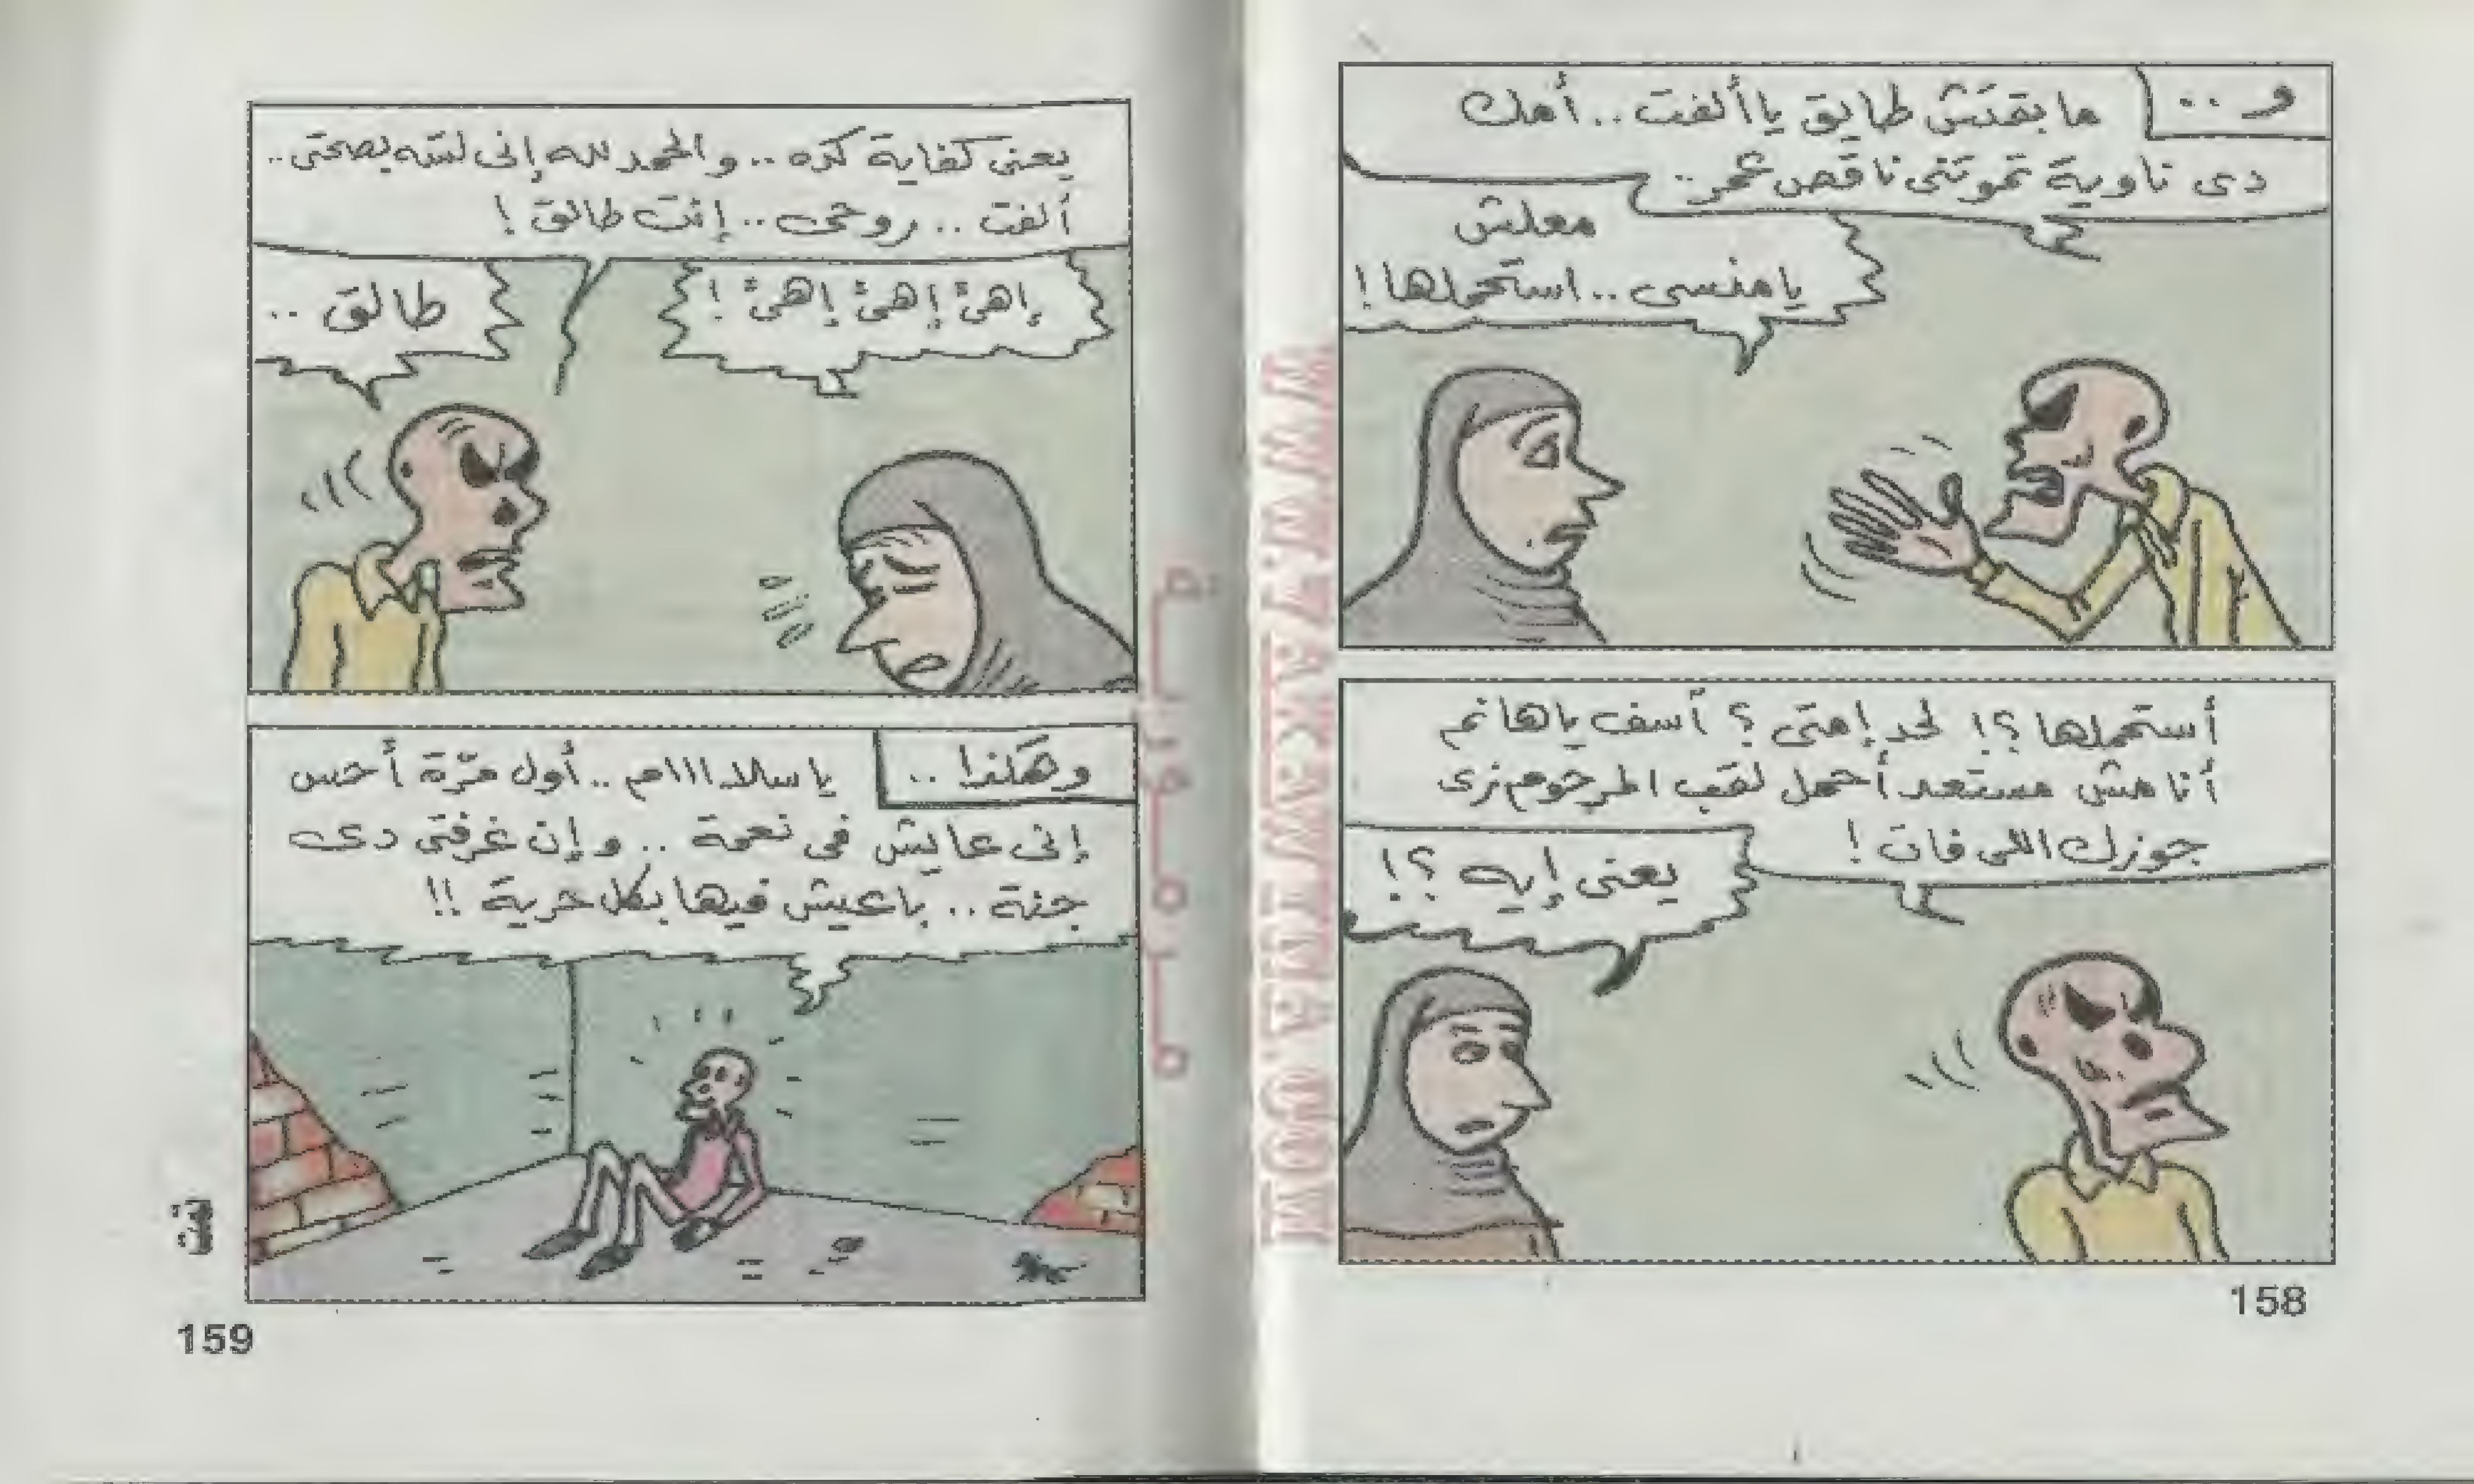 و..
ما بقتش طايق يا ألفت.. أمك
دى ناوية تموتنى ناقص عمر..
معلش
يا منسى.. استحملها!
أستحملها؟! لحد إمتى؟ آسف يا هانم
أنا مش مستعد أحمل لقب المرحوم زى
جوزك اللى فات!
يعنى إيه؟!
158
يعنى كفاية كده.. والحمد لله إنى لسّه بصحتى..
ألفت.. روحى.. إنت طالق!
إهئ إهئ إهئ!
طالق..
وهكذا..
يا سلااااام.. أول مرّة أحس
إنى عايش فى نعمة.. وإن غرفتى دى
جنة.. باعيش فيها بكل حرية!!
159